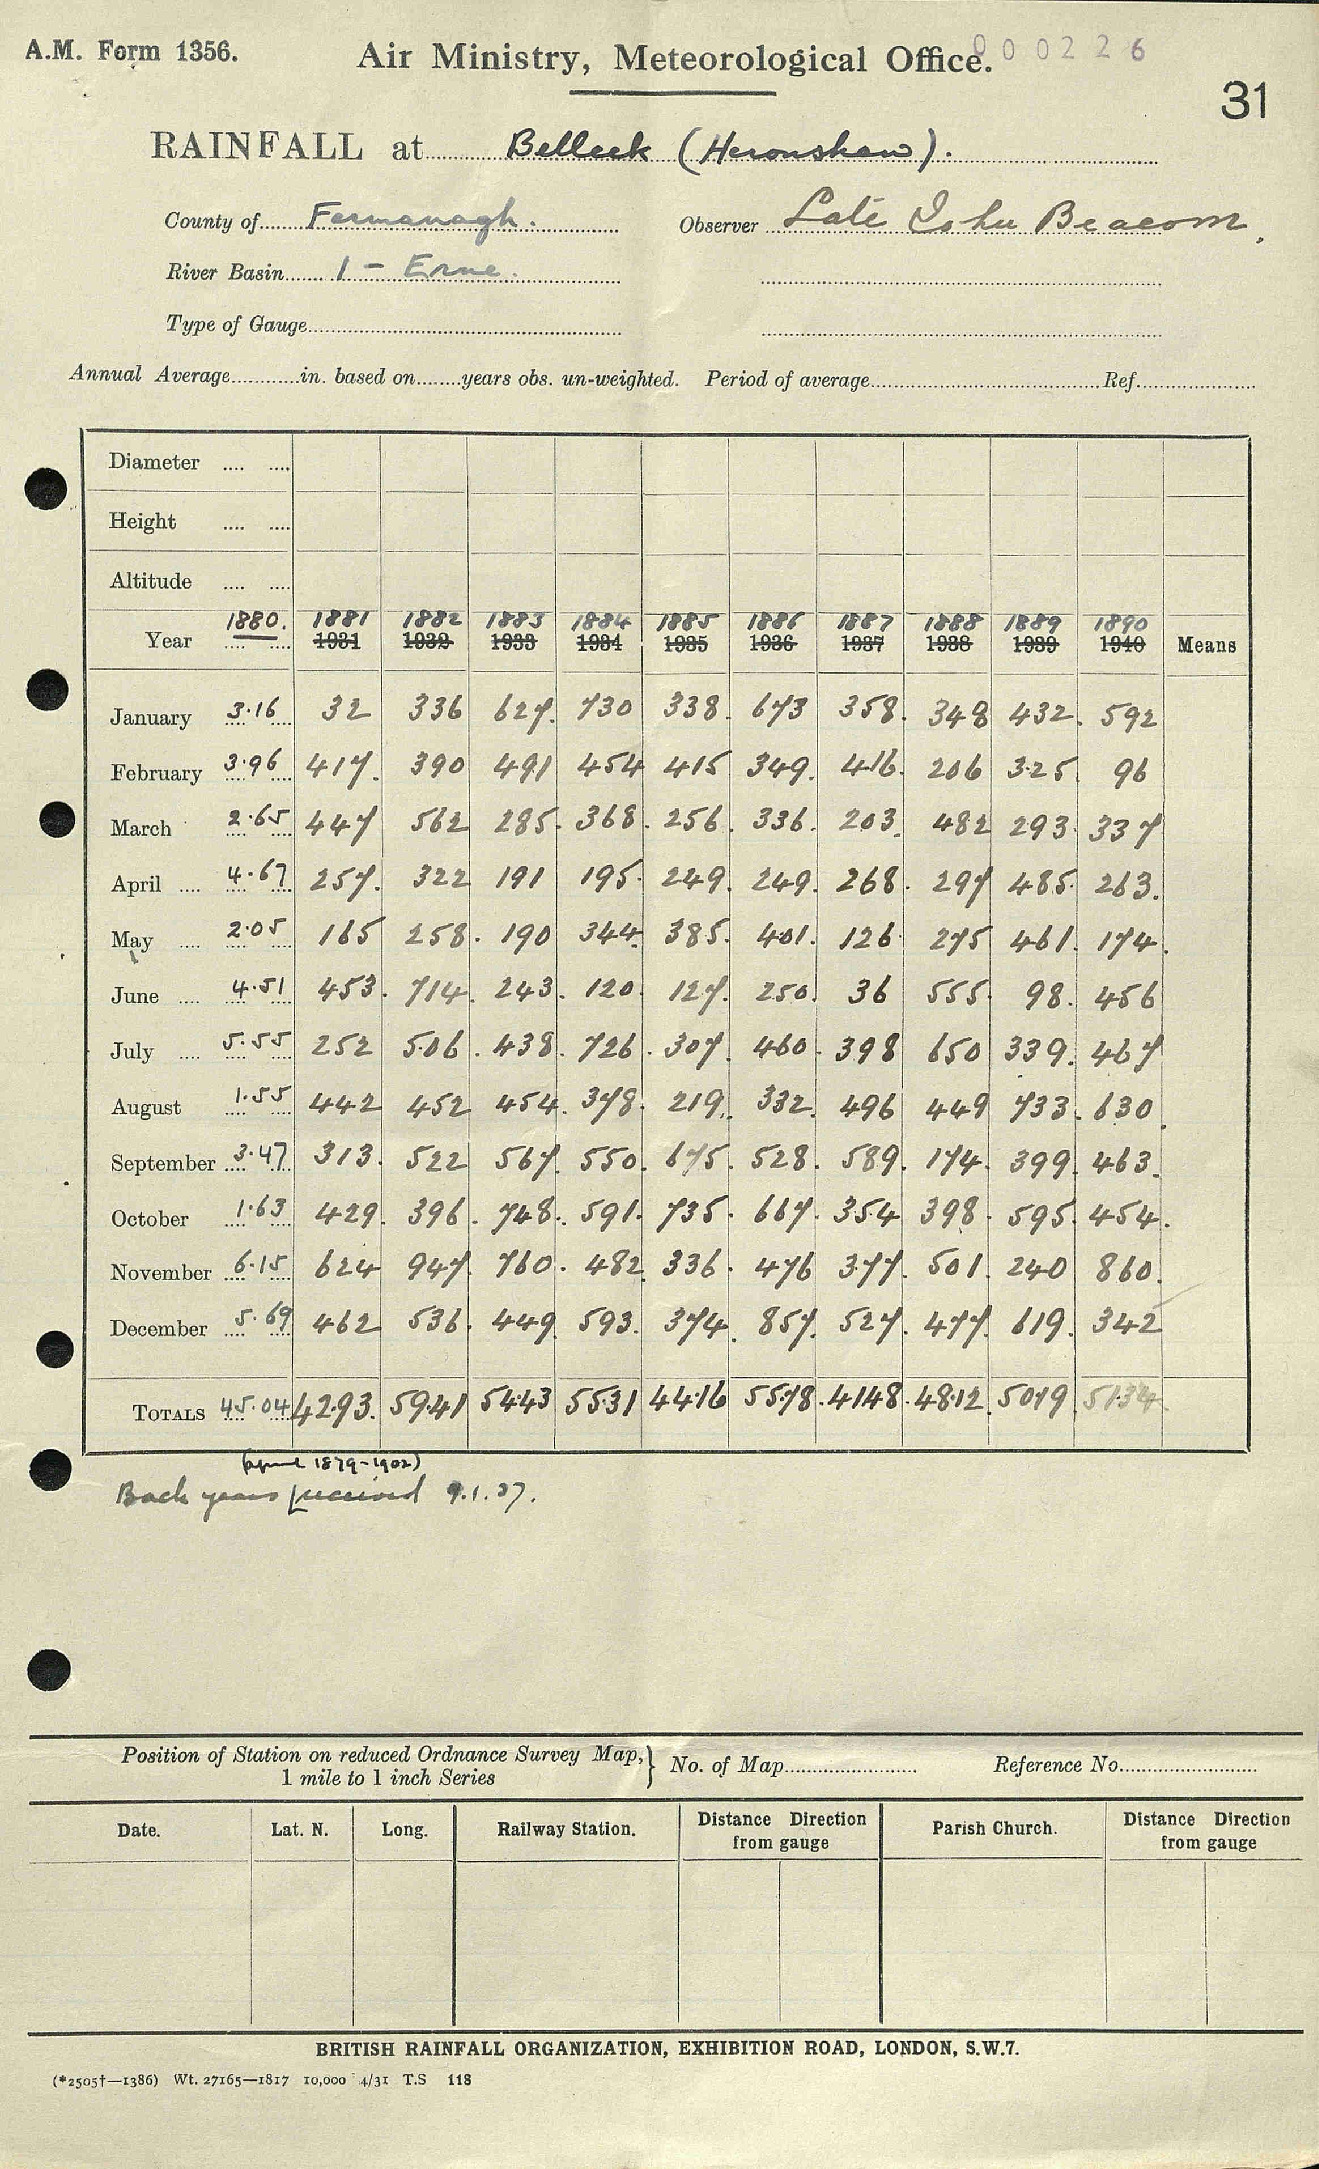 A.M. Form 1356.
Air Ministry, Meteorological Office.
000226
31
RAINFALL at Belleek (Heronshaw).
County of Fermanagh. Observer Late John Beacom.
River Basin 1 - Erne.
Type of Gauge
Annual Average in. based on years obs. un-weighted. Period of average Ref.
Diameter
Height
Altitude
1880. 1881 1882 1883 1884 1885 1886 1887 1888 1889 1890
Year 1931 1932 1933 1934 1935 1936 1937 1938 1939 1940 Means
January 3.16 32 336 627. 730 338. 673 358. 348 432. 592
February 3.96 417. 390 491 454 415 349. 416. 206 325 96
March 2.65 447 562 285. 368. 256. 336. 203. 482 293 337
April 4.67 257. 322 191 195 249. 249. 268. 297 485. 263.
May 2.05 165 258. 190 344. 385. 401. 126 275 461. 174.
June 4.51 453. 714. 243. 120 127. 250. 36 555 98. 456
July 5.55 252 506. 438. 726. 307. 460. 398 650 339. 467
August 1.55 442 452 454. 378. 219. 332. 496 449 733. 630.
September 3.47 313. 522 567. 550. 675. 528. 589. 174. 399. 463.
October 1.63 429. 396. 748. 591. 735. 667. 354 398. 595. 454.
November 6.15 624 947. 760. 482. 336. 476 377. 501. 240 860.
December 5.69 462 536. 449 593. 374. 857. 527. 477. 619. 342
TOTALS 45.04 42.93. 59.41 54.43 55.31 44.16 55.78. 41.48. 48.12. 50.19 51.34
(April 1879-1902)
Back years received 9.1.37.
Position of Station on reduced Ordnance Survey Map, } No. of Map Reference No.
1 mile to 1 inch Series
Date. Lat. N. Long. Railway Station. Distance Direction from gauge Parish Church. Distance Direction from gauge
BRITISH RAINFALL ORGANIZATION, EXHIBITION ROAD, LONDON, S.W.7.
(*2505†—1386) Wt. 27165—1817 10,000 4/31 T.S 118